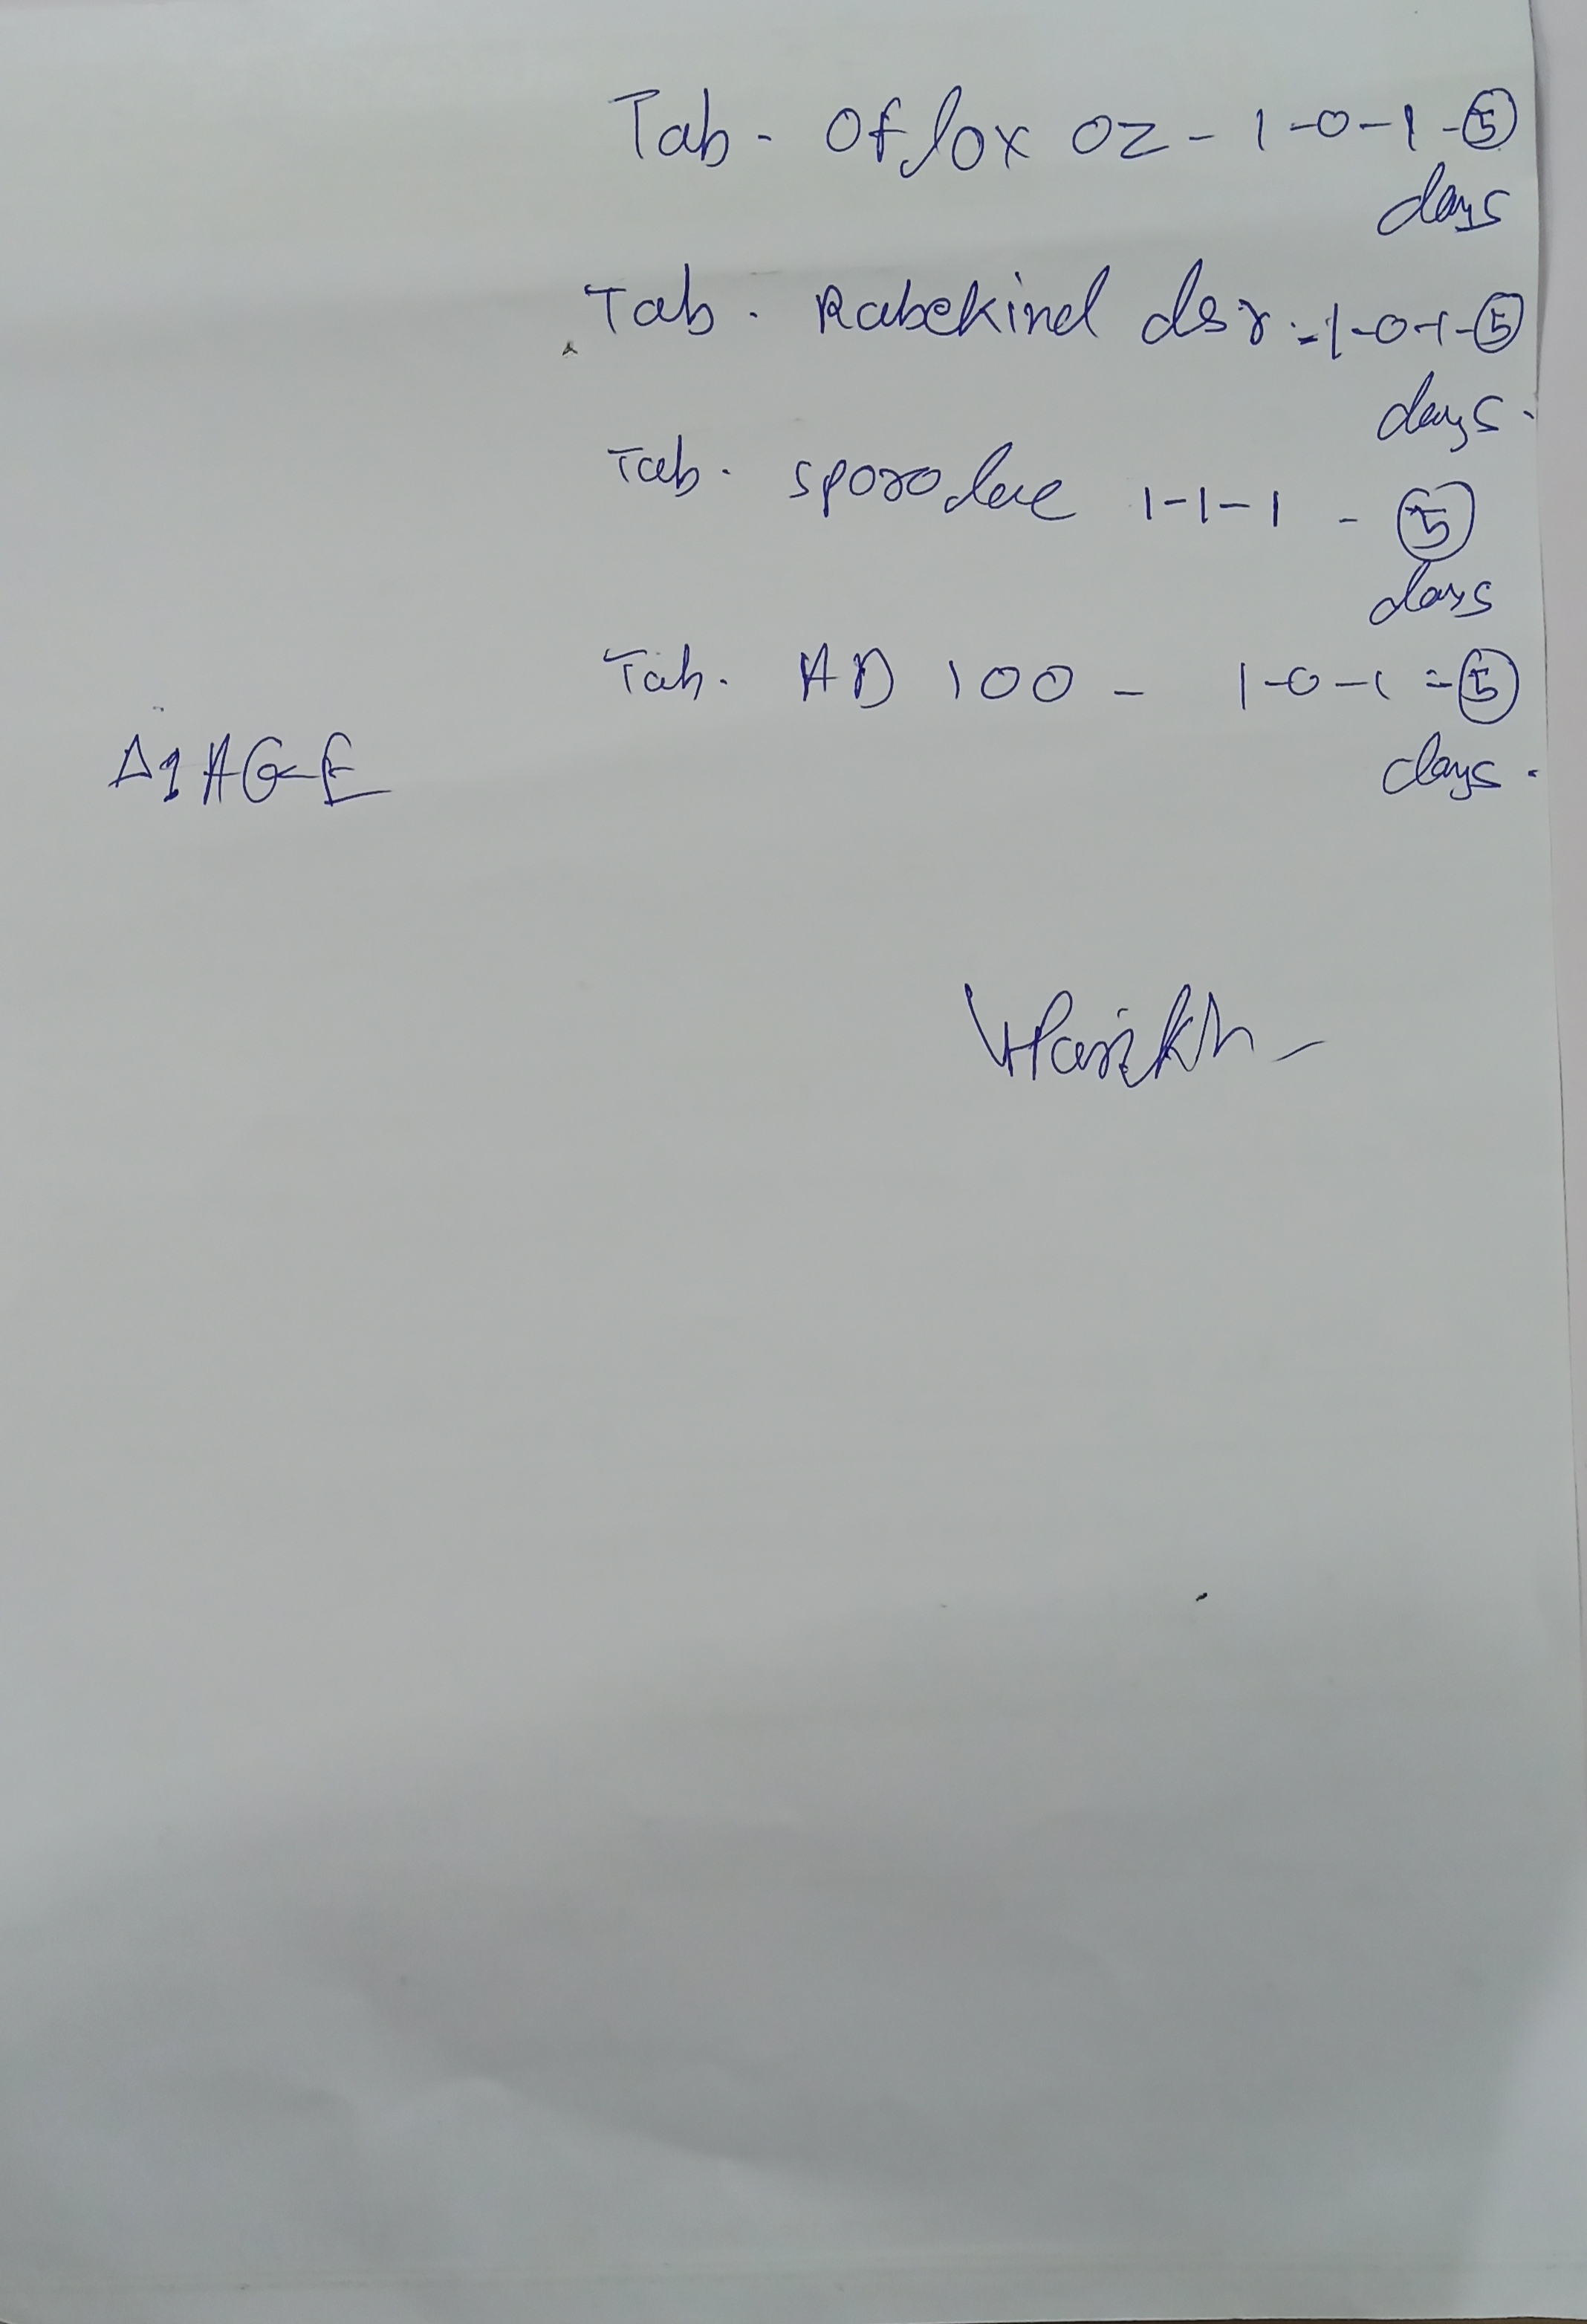 Tab. Oflox OZ - 1-0-1 - 5
days
Tab. Rabekind dsr - 1-0-1 - 5
days.
Tab. Sporolac 1-1-1 - 5
days
Tab. AD 100 - 1-0-1 = 5
days.
Δ AGE